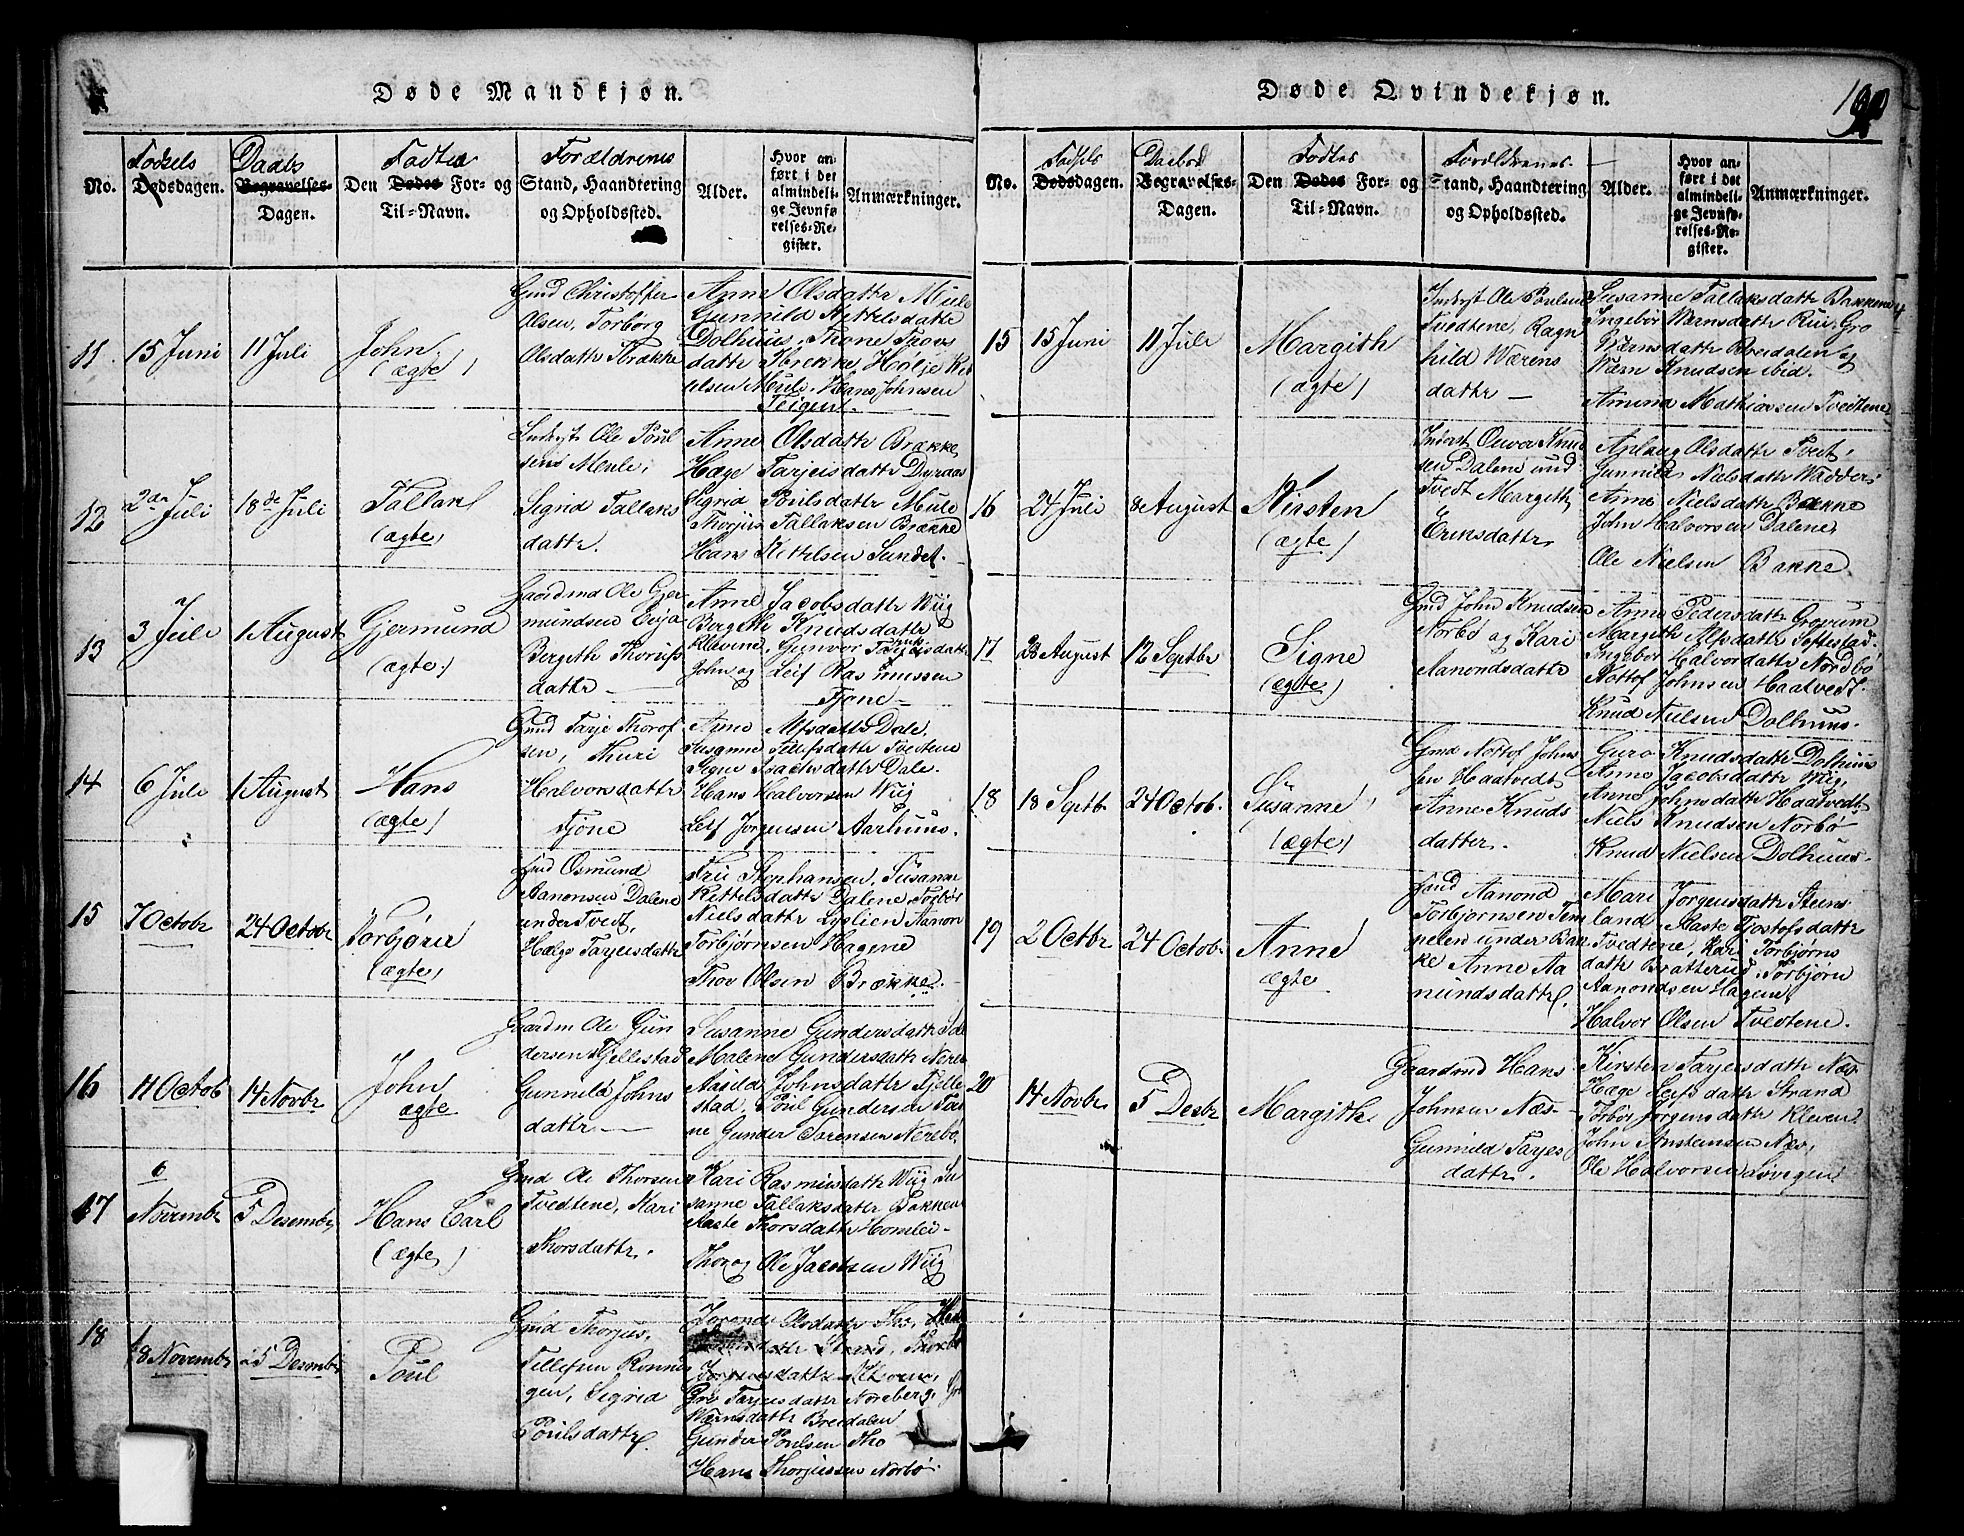 Døde Mandkjøn.
No.
Fødsels
Dødsdagen.
Daabs
Begravelses-
Dagen.
Fødtes
Den Dødes For- og
Til-Navn.
Forældrenes
Stand, Haandtering
og Opholdssted.
Alder.
Hvor an-
ført i det
almindeli-
ge Jevnfø-
relses-Re-
gister.
Anmærkninger.
11.
15 Juni
11 Juli
John
(ægte)
Gmd Christoffer
Olsen, Torborg
Olsdatter Brække
Anne Olsdattr Mule
Gunnild Kittelsdattr
Dolhuus, Thone Thovs
datter Brekke, Hølje Kit
elsen Meule, Hans Johnsen
Teigen.
12
2de Juli
18de Juli
Tallak
(ægte)
Inderst Ole Poul
sens Meule,
Sigrid Tallaks
dattr.
Anne Olsdattr Brække
Hæge Tarjeisdattr Dyraas
Sigrid Poulsdattr Mule
Thorjus Tallaksen Brække
Hans Kittelsen Sundet.
13
3 Juli
1 August
Gjermund
(ægte)
Gaardmd Ole Gjer
mundsen
Bergithe
dattr
Anne Jacobsdattr Wiig
Bergithe Knudsdattr
Klævene, Gunvor
John og Leif Rasmussen
Tjone
14
6 Juli
1 August
Hans
(ægte)
Gmd Tarje Thorof
sen, Thuri
Halvorsdattr
Tjone
Anne Alfsdattr Dale.
Susanne Tellefsdattr Tvetene
Signe Dale.
Hans Halvorsen Wiig
Leif Jørgensen Aarhuus.
15
7 Octobr
24 Octobr
Torbjørn
(ægte)
Gmd Osmund
Aanonsen Dalene
under Tvedt,
Hæge Tarjeisdattr
Fru Stephansen, Susanne
Kittelsdattr Dalene, Torbor
Nielsdattr Lyslien, Aanon
Torbjørnsen Hagene
Thov Olsen Brække.
16
11 Octob
14 Novbr
John
ægte
Gaardm Ole Gun
dersen Fjellestad
Gunnild Johns
dattr.
Susanne Gundersdattr
Malene Gundersdattr Nerebø
Aasild Johnsdattr Fjelle
stad, Poul Gundersen
ne Gunder Sørensen Nerebø.
17
6
Novembr
5 Desembr
Hans Carl
(ægte)
Gmd Ole Thorsen
Tvedtene, Kari
Thorsdattr.
Kari Rasmusdattr Wiig Su
sanne Tallaksdattr Bakken
Aaste Thorsdattr
Thor og Ole Jacobsen Wiig
18
18 Novembr
25 Desembr
Poul
Gmd Thorjus
Tellefsen Rønnin
gen, Sigrid
Poulsdattr.
Jorond Olsdattr Tho,
Strand,
Gro Tarjesdattr Noreberg,
Wærnsdattr Breidalen
Gunder Poulsen Tho
Hans Thorjussen Norbø
Døde Qvindekjøn.
190
No.
Fødsels
Dødsdagen.
Daabs
Begravelses-
Dagen.
Fødtes
Den Dødes For- og
Til-Navn.
Forældrenes
Stand, Haandtering
og Opholdssted.
Alder.
Hvor an-
ført i det
almindeli-
ge Jevnfø-
relses-Re-
gister.
Anmærkninger.
15
15 Juni
11 Juli
Margith
(ægte)
Inderst Ole Poulsen
Tvedtene, Ragn
hild Wærens
dattr
Susanne Tallaksdattr Bakkene
Ingebor Wærnsdattr Rui, Gro
Wærnsdattr Breidalen og
Wærn Knudsen ibid.
Amund Mathiassen Tvedtene
16
24 Juli
8 August
Kirsten
(ægte)
Inderst Knud
sen Dalene und
Tvedt Margith
Eriksdattr
Aslaug Olsdattr Tvedt,
Gunnild Nielsdattr
Anne Nielsdattr Bakke
John Halvorsen Dalene,
Ole Nielsen Bakke.
17
28 August
12 Septbr
Signe
(ægte)
Gmd John Knudsen
Norbø og Kari
Aanondsdattr
Anne Pedersdattr Grovum
Margith Alfsdattr Toftestad
Ingebor Halvordattr Nordbø
Nottof Johnsen Haatvedt.
Knud Nielsen Dolhuus.
18
18 Septbr
24 Octob.
Susanne
(ægte)
Gmd Nottof Johns
sen Haatvedt
Anne Knuds
datter.
Guro Knudsdattr Dolhuus
Anne Jacobsdattr Wiig,
Anne Johnsdattr Haatvedt
Niels Knudsen Norbø
Knud Nielsen Dolhuus.
19
2 Octbr
24 Octob.
Anne
ægte
Gmd Aanond
Torbjørnsen Tem
pelen under Bak
ke Anne Aa
nundsdattr.
Mari Jørgensdattr Steins
land, Aaste Tjostofsdattr
Tvedtene, Kari Torbjørns
dattr Bratterud, Torbjørn
Aanondsen Hagene,
Halvor Olsen Tvedtene.
20
14 Novbr
5 Desbr
Margith
Gaardmd Hans
Johnsen Næs
Gunnild Tarjes
dattr.
Kirsten Tarjesdattr Næs
Hæge Leifsdattr Strand
Torbor Jørgensdattr Kleven
John Anstensen Næs,
Ole Halvorsen Løvigen